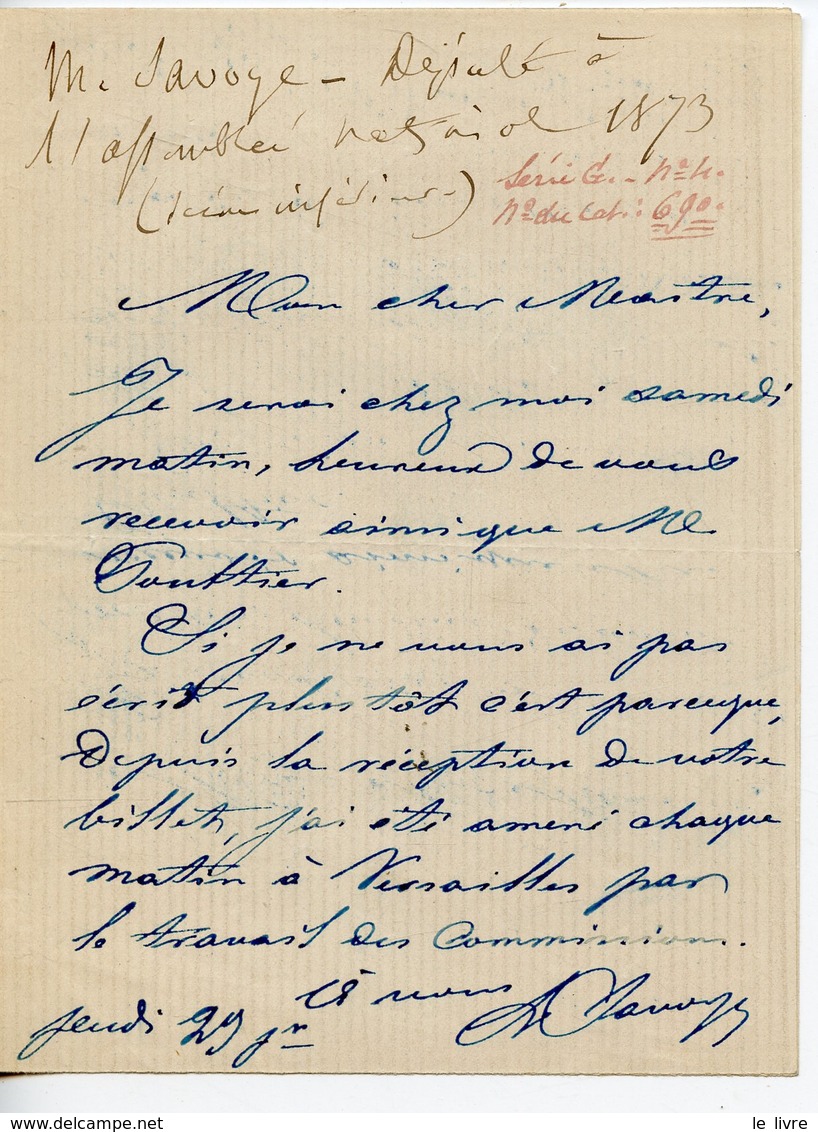 M. Savoye - Député à
l'assemblée nationale 1873
(Seine inférieure-)
Série G. - Nº 4.
Nº du Cat.: 690.
Mon cher Maître,
Je serai chez moi samedi
matin, heureux de vous
recevoir ainsi que M
Gouttier.
Si je ne vous ai pas
écrit plustôt c'est parceque,
Depuis la réception de votre
billet, j'ai été amené chaque
matin à Versailles par
le travail des Commissions.
à vous
Savoye
jeudi 29 jr
© Delcampe.net
le livre